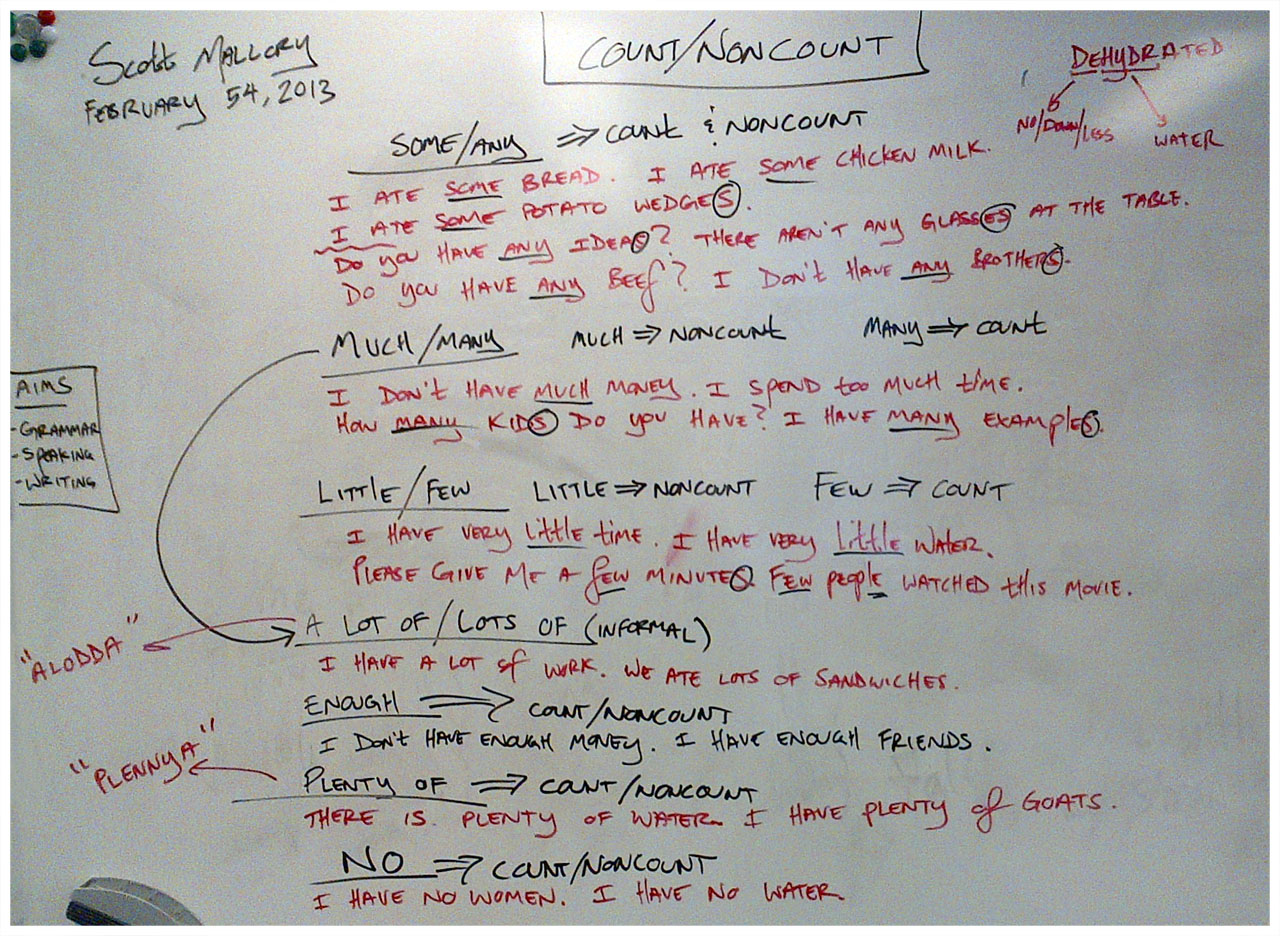 Scott Mallory
February 54, 2013
COUNT/NONCOUNT
DEHYDRATED
NO/DOWN/LESS
WATER
SOME/ANY ⇒ COUNT & NONCOUNT
I ATE SOME BREAD. I ATE SOME CHICKEN MILK.
I ATE SOME POTATO WEDGES.
DO YOU HAVE ANY IDEAS? THERE AREN'T ANY GLASSES AT THE TABLE.
DO YOU HAVE ANY BEEF? I DON'T HAVE ANY BROTHERS.
MUCH/MANY MUCH ⇒ NONCOUNT MANY ⇒ COUNT
I DON'T HAVE MUCH MONEY. I SPEND TOO MUCH TIME.
HOW MANY KIDS DO YOU HAVE? I HAVE MANY EXAMPLES.
AIMS
- GRAMMAR
- SPEAKING
- WRITING
LITTLE/FEW LITTLE ⇒ NONCOUNT FEW ⇒ COUNT
I HAVE VERY LITTLE TIME. I HAVE VERY LITTLE WATER.
PLEASE GIVE ME A FEW MINUTES. FEW PEOPLE WATCHED THIS MOVIE.
A LOT OF/LOTS OF (INFORMAL)
"ALODDA"
I HAVE A LOT OF WORK. WE ATE LOTS OF SANDWICHES.
ENOUGH ⇒ COUNT/NONCOUNT
I DON'T HAVE ENOUGH MONEY. I HAVE ENOUGH FRIENDS.
"PLENNYA"
PLENTY OF ⇒ COUNT/NONCOUNT
THERE IS PLENTY OF WATER. I HAVE PLENTY OF GOATS.
NO ⇒ COUNT/NONCOUNT
I HAVE NO WOMEN. I HAVE NO WATER.